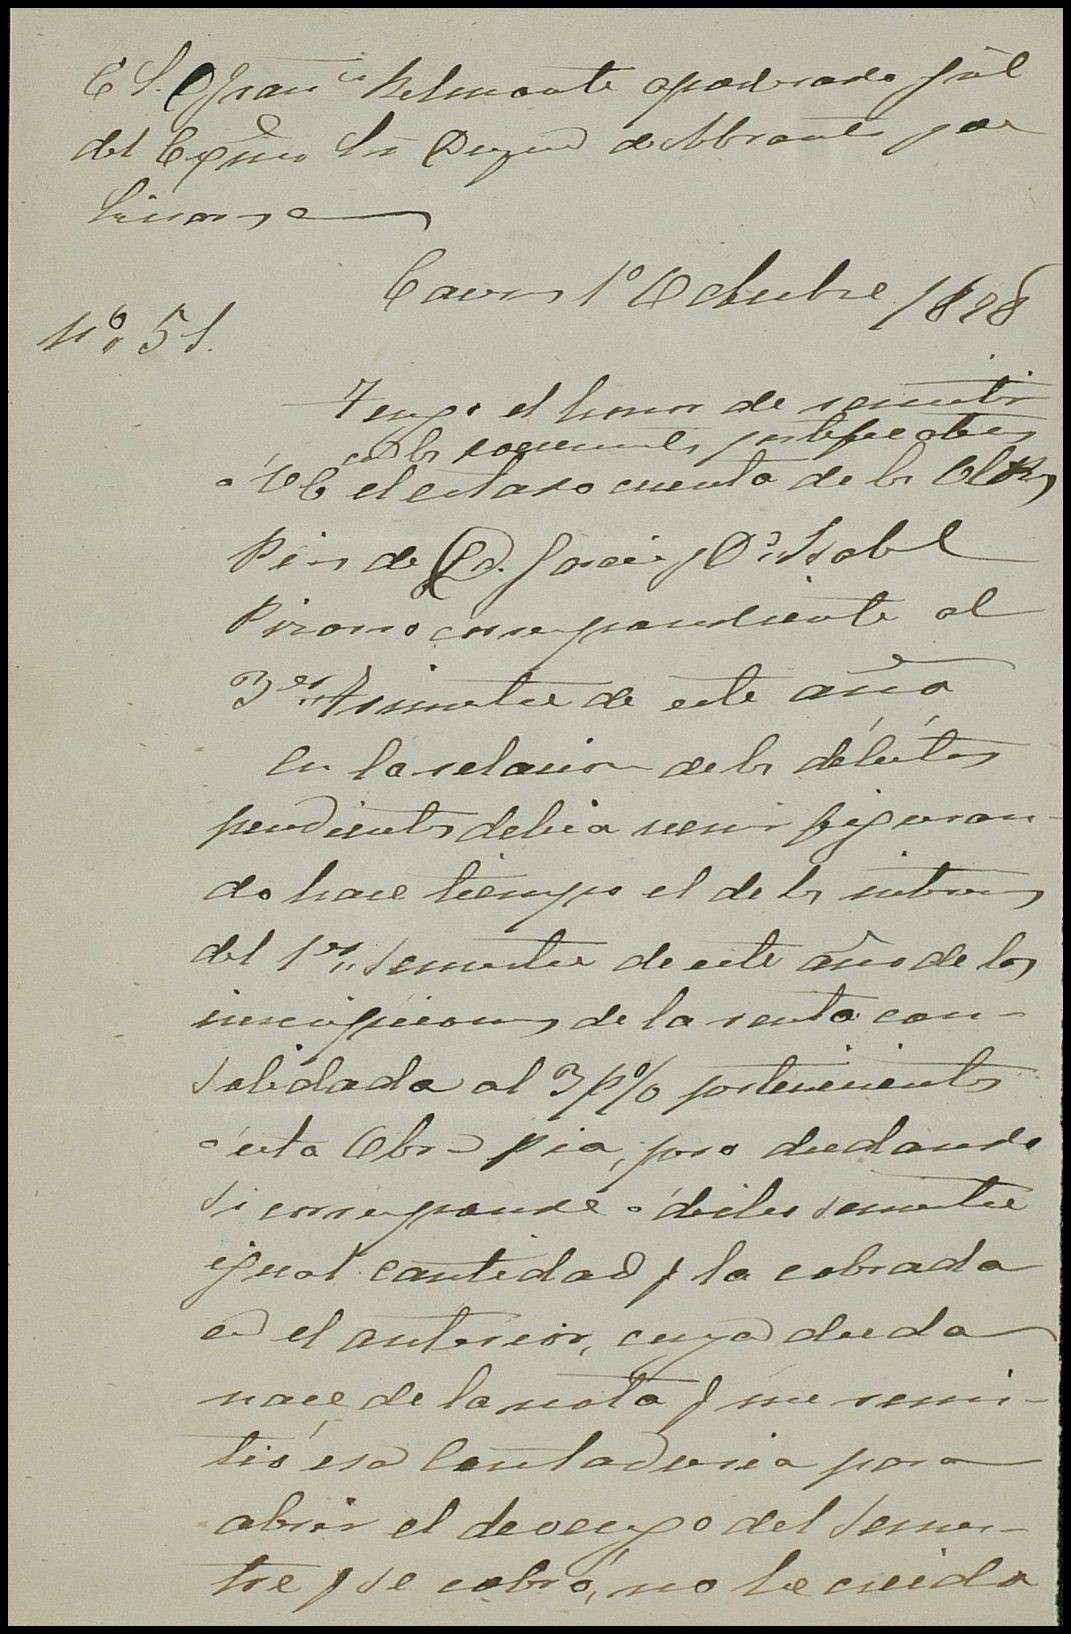 E S. D Fran.co Belmonte apoderado gral
del Exmo Sr Duque de Abrantes por
Linares
1º Octubre 1878
Nº 51.
Tengo el honor de remitir
con los documentos justificativos
á VE el estado cuenta de las Obras
Pias de D. Garcia y Dª Isabel
Pizarro correspondiente al
3er Trimestre de este año
En la relacion de los débitos
pendientes debia venir figuran-
do hace tiempo el de los intereses
del 1er Semestre de este año de las
inscripciones de la renta con-
solidada al 3 p% pertenecientes
á esta Obra pia, pero dudando
si corresponde á dicho semestre
igual cantidad q la cobrada
en el anterior, cuya duda
nace de la nota q me remi-
tió esa Contaduria para
abrir el devengo del Semes-
tre q se cobró, no he cuida